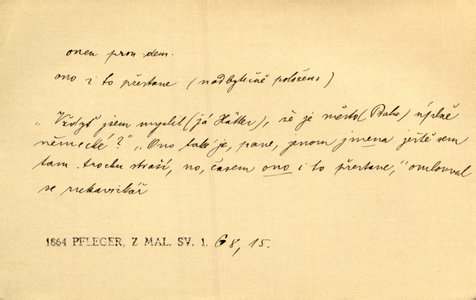 onen pron. dem.
ono i to přestane (nadbytečně položeno)
„Vždyť jsem myslil (já Hátler), že je město (Praha) úplně
německé?" „Ono také je, pane, jenom jména ještě sem
tam trochu straší, no, časem ono i to přestane," omlouval
se rukavičkář
1864 PFLEGER, Z MAL. SV. 1. 68, 15.